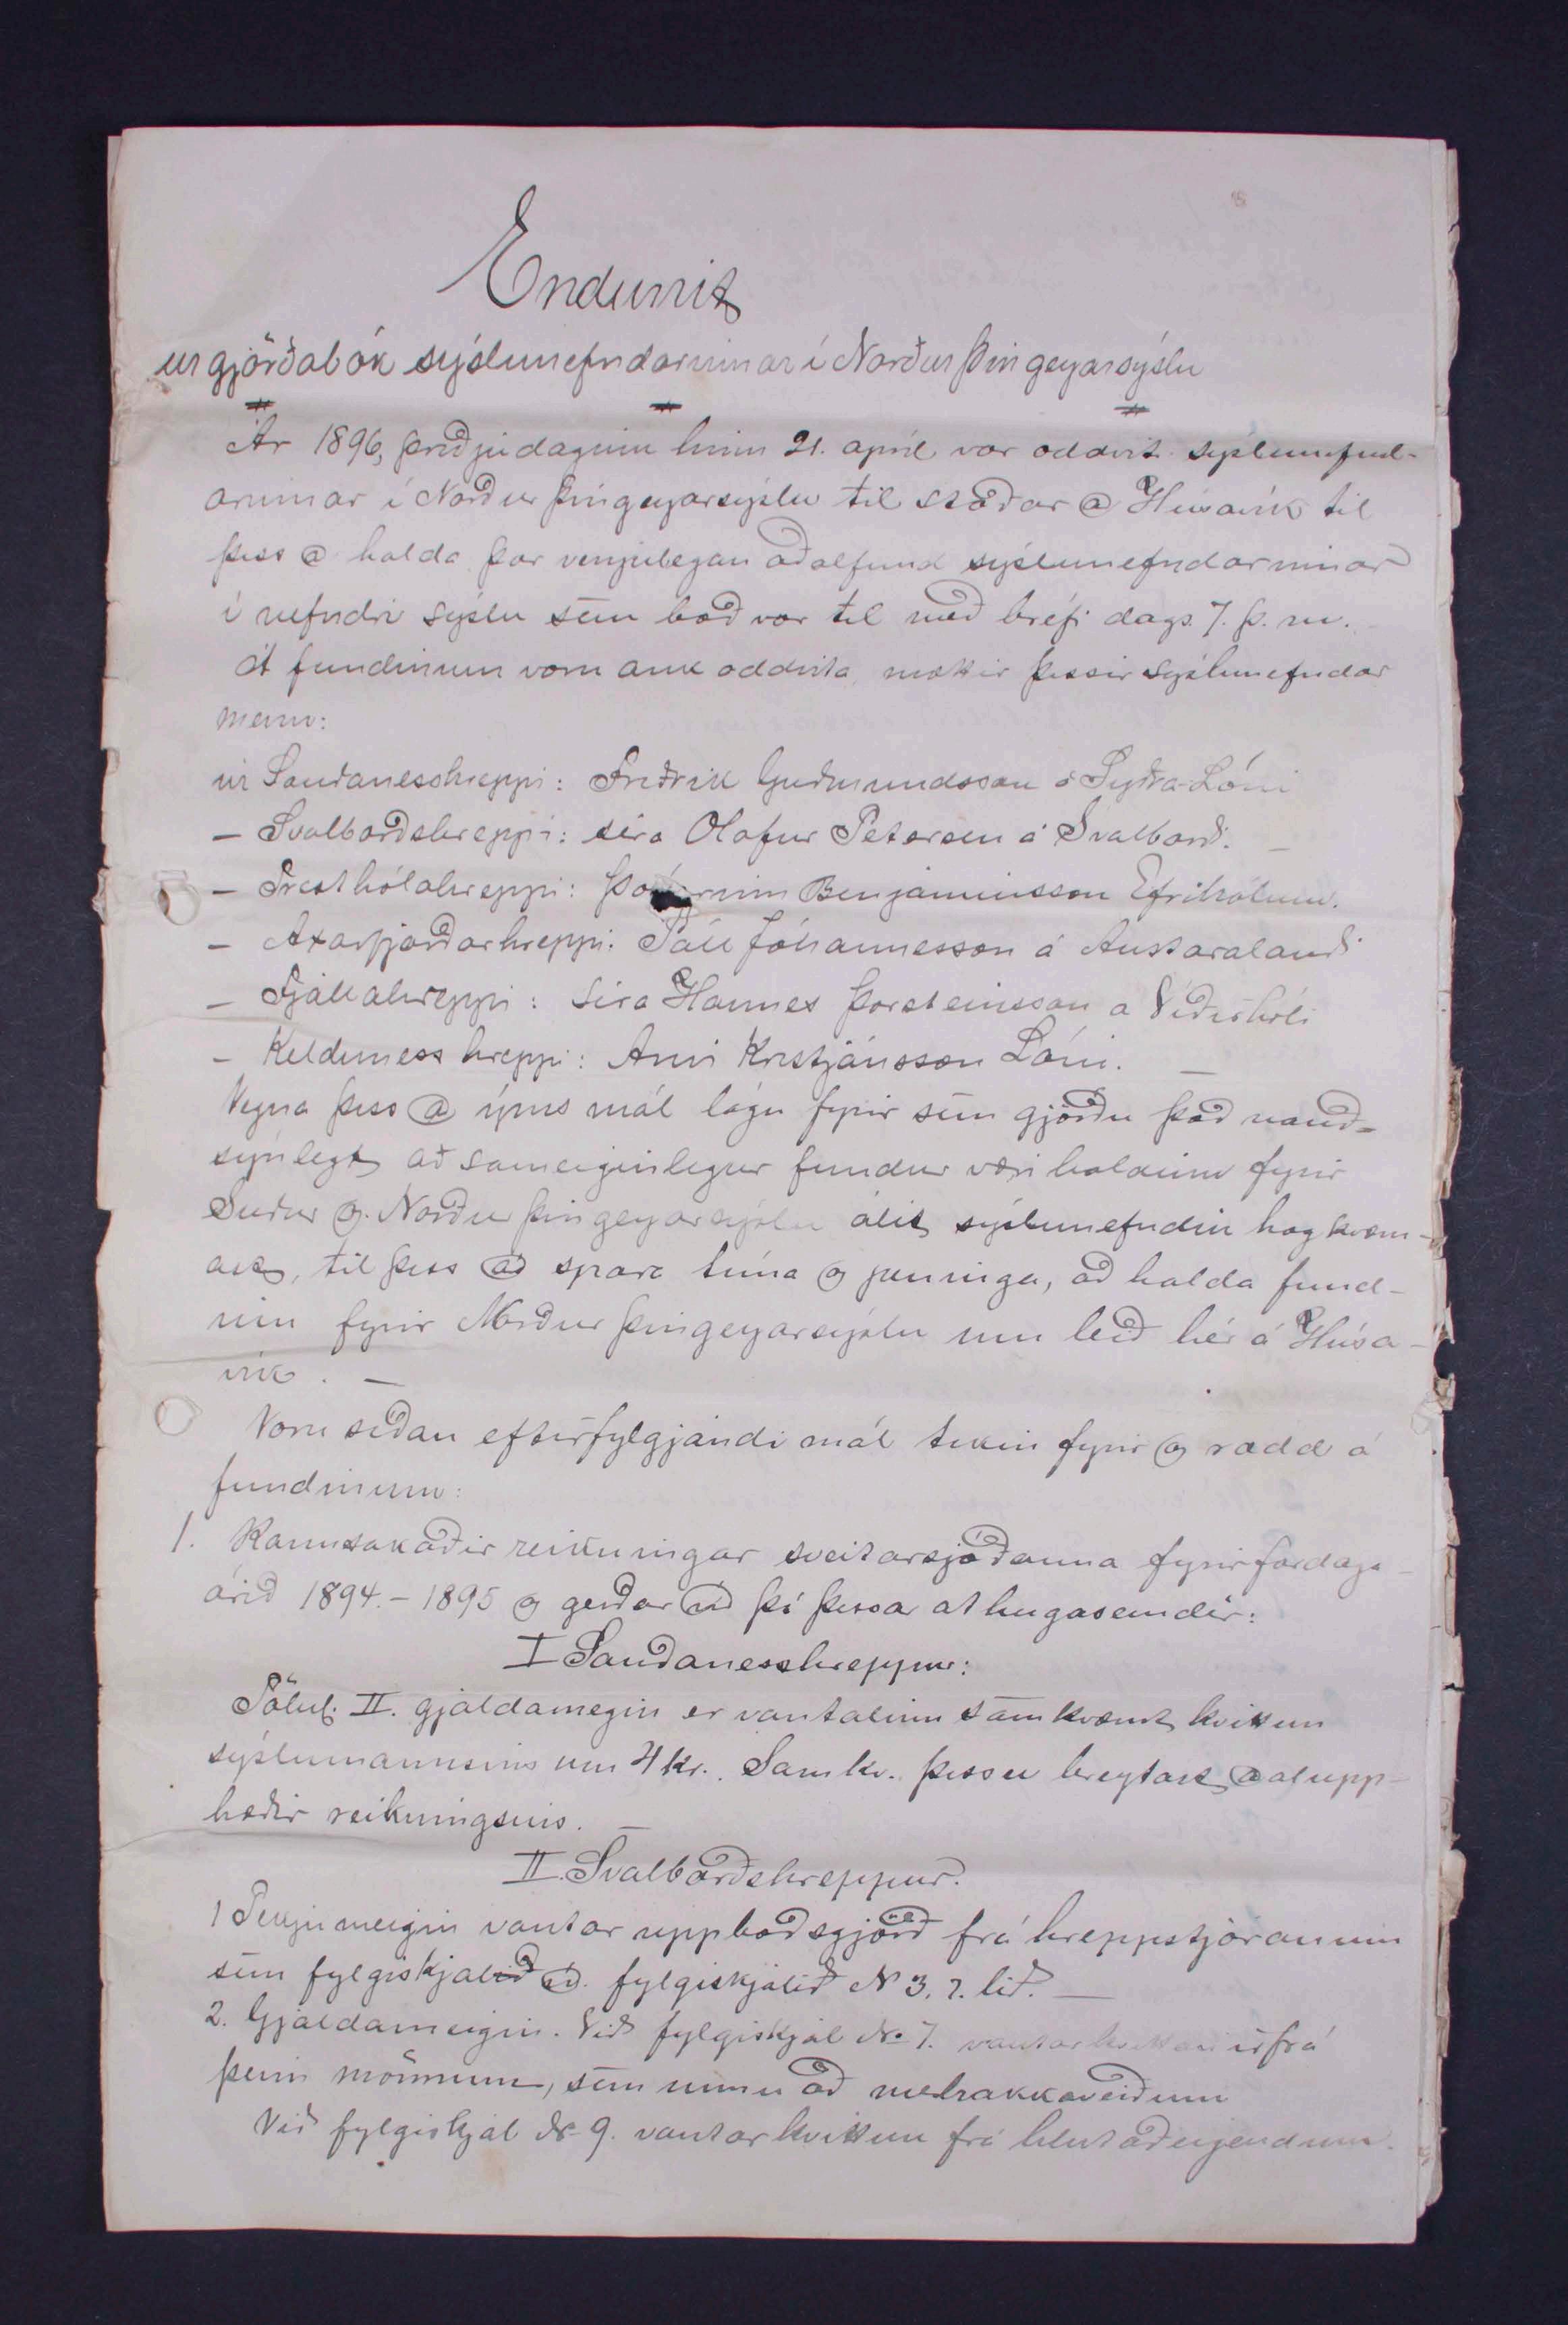 Endurrit
úr gjörðabók sýslunefndarinnar í Norður Þingeyarsýslu
Ár 1896, þriðjudaginn hinn 21. apríl var oddvit. sýslunefnd-
arinnar í Norður Þingeyarsýslu til staðar @ Húsavík til
þess @ halda þar venjulegan aðalfund sýslunefndarinnar
í nefndri sýslu sem boð var til með bréfi dags. 7. þ. m.
Á fundinum voru auk oddvita mættir þessir sýslunefndar
menn:
úr Sauðanesshreppi: Friðrik Guðmundsson á Syðra-Lóni
– Svalbarðshreppi: síra Ólafur Petersen á Svalbarði. –
– Presthólahreppi: Þorgrimm Benjamínsson Efrihólum.
– Axarfjarðarhreppi: Páll Jóhannesson á Austaralandi
– Fjallahreppi: Síra Hannes Þorsteinsson á Víðirhóli
– Kelduness hreppi: Árni Kristjánsson Lóni. –
Vegna þess @ ýms mál lágu fyrir sem gjörðu það nauð-
synlegt að sameiginlegur fundur væri haldinn fyrir
Suður og Norður Þingeyarsýslu áleit sýslunefndin hagkvæm-
ast, til þess að spara tíma og peninga, að halda fund-
inn fyrir Norður Þingeyarsýslu um leið hér á Húsa-
vík. –
Voru síðan eftirfylgjandi mál tekin fyrir og rædd á
fundinum:
1. Rannsakaðir reikningar sveitarsjóðanna fyrir fardaga-
árið 1894.–1895 og gerðar við þá þessar athugasemdir:
I Sauðanesshreppur:
Tölul. II. gjaldamegin er vantalinn samkvæmt kvittun
sýslumannsins um 4 kr. Samkv. þessu breytast aðalupp-
hæðir reikningsins. –
II. Svalbarðshreppur.
1 Tekjumegin vantar uppboðsgjörð frá hreppstjóranum
sem fylgiskjalið við fylgiskjalið N 3, 2. lið. –
2. Gjaldamegin. Við fylgiskjal No 7. vantar kvittanir frá
þeim mönnum, sem unnu að melrakkaveiðum
Við fylgiskjal No 9. vantar kvittun frá hlutaðeigendum.